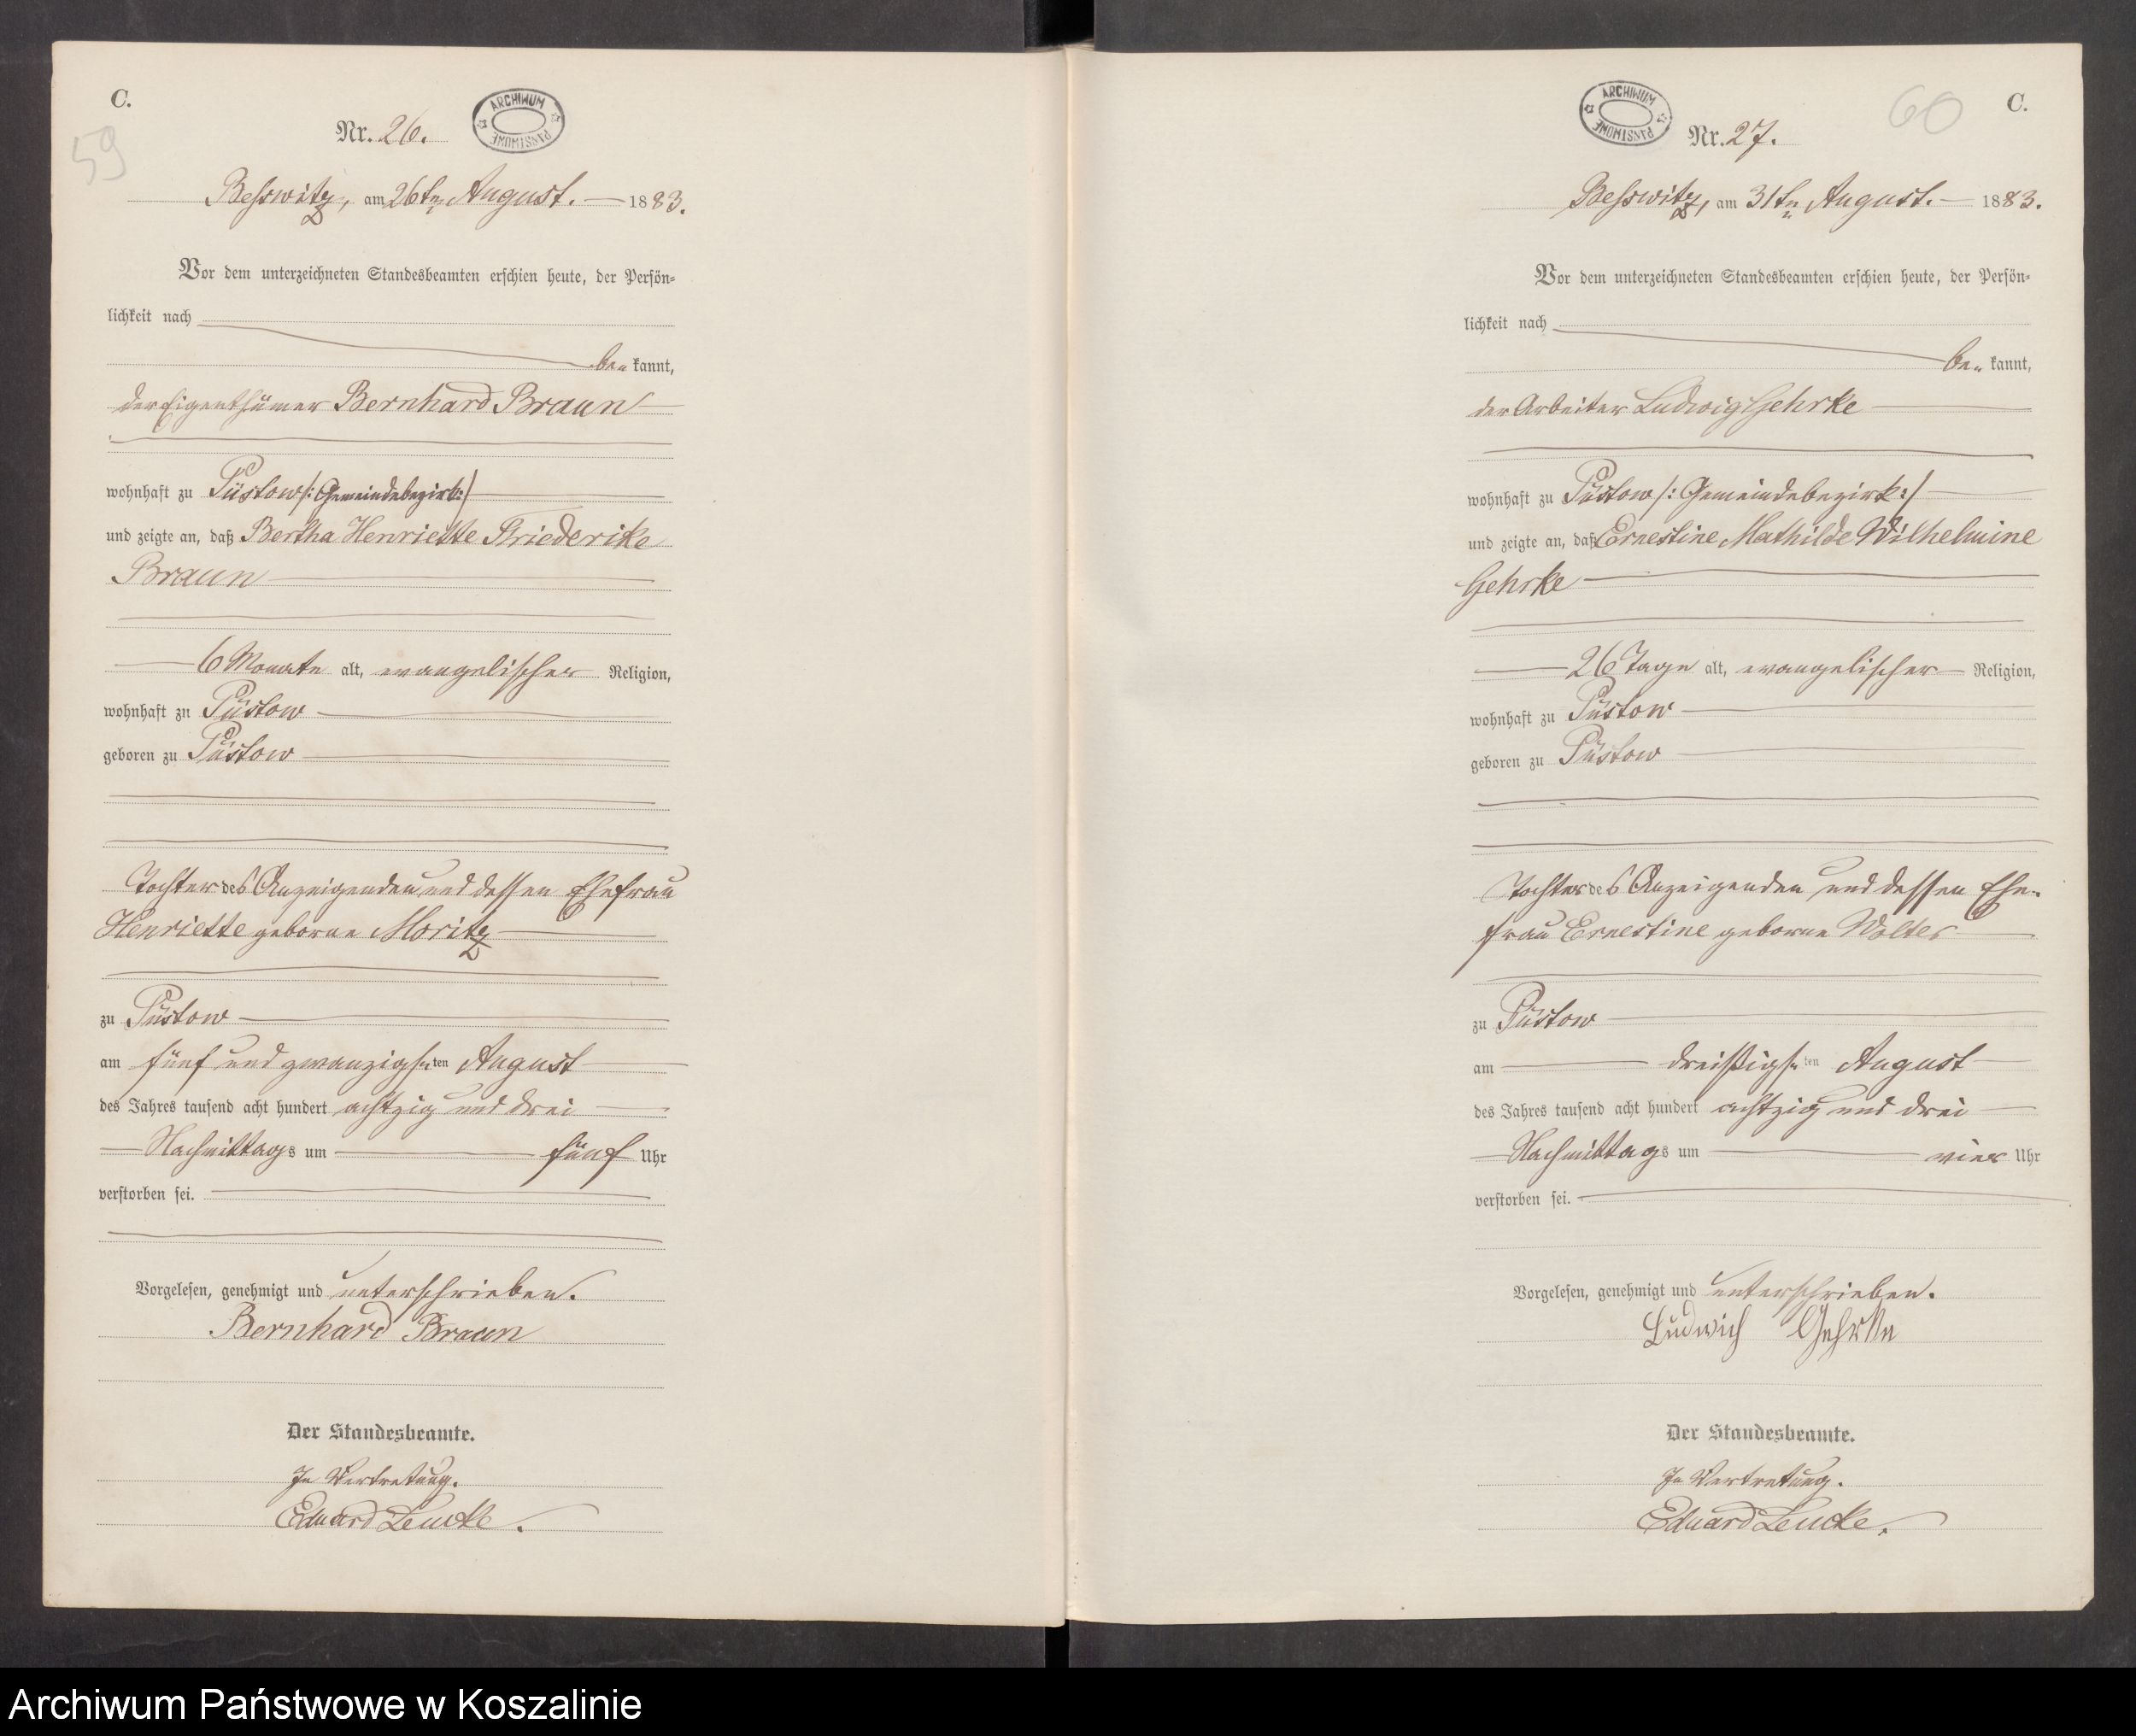 C.
59
Nr. 26.
ARCHIWUM PAŃSTWOWE
Besswitz, am 26ten August. 1883.
Vor dem unterzeichneten Standesbeamten erschien heute, der Persön-
lichkeit nach
be kannt,
der Eigenthümer Bernhard Braun
wohnhaft zu Püstow /: Gemeindebezirk :/
und zeigte an, daß Bertha Henriette Friederike
Braun
6 Monate alt, evangelischer Religion,
wohnhaft zu Püstow
geboren zu Püstow
Tochter des Anzeigenden und dessen Ehefrau
Henriette geborne Moritz
zu Püstow
am fünf und zwanzigsten August
des Jahres tausend acht hundert achtzig und drei
Nachmittags um fünf Uhr
verstorben sei.
Vorgelesen, genehmigt und unterschrieben.
Bernhard Braun
Der Standesbeamte.
In Vertretung.
Eduard Lemcke.
60
C.
ARCHIWUM PAŃSTWOWE
Nr. 27.
Besswitz, am 31ten August. 1883.
Vor dem unterzeichneten Standesbeamten erschien heute, der Persön-
lichkeit nach
be kannt,
der Arbeiter Ludwig Gehrke
wohnhaft zu Püstow /: Gemeindebezirk :/
und zeigte an, daß Ernestine Mathilde Wilhelmine
Gehrke
26 Tage alt, evangelischer Religion,
wohnhaft zu Püstow
geboren zu Püstow
Tochter des Anzeigenden und dessen Ehe-
frau Ernestine geborne Wolter
zu Püstow
am dreißigsten August
des Jahres tausend acht hundert achtzig und drei
Nachmittags um vier Uhr
verstorben sei.
Vorgelesen, genehmigt und unterschrieben.
Ludwich Gehrke
Der Standesbeamte.
In Vertretung.
Eduard Lemcke.
Archiwum Państwowe w Koszalinie